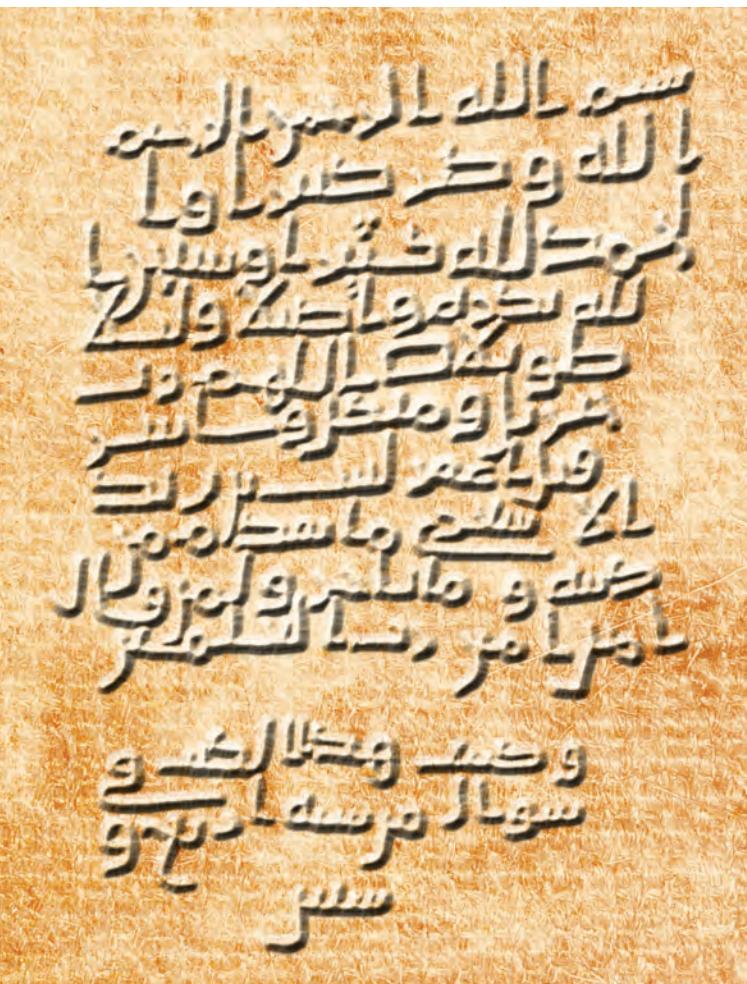 بسم الله الرحمن الرحيم
الله وكبر كبيرا وا
لحمد لله كثيرا وسبحن ا
لله بكرة وأصيلا وليلا
طويلا اللهم رب
جبريل وميكل واسر
فيل اغفر لثبت بن يزيد
الاشعري ما تقدم من
ذنبه وما تاخر ولمن قال
امين امين رب العلمين
وكتبت هذا الكتب في
شوال من سنة اربع و
ستين